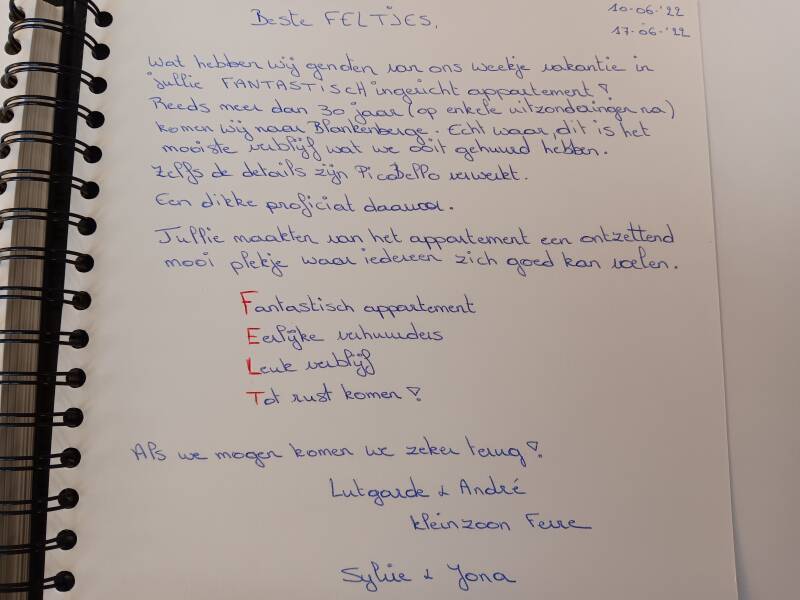 10-06-'22
17-06-'22
Beste FELTJES,
Wat hebben wij genoten van ons weekje vakantie in
jullie FANTASTISCH ingericht appartement!
Reeds meer dan 30 jaar (op enkele uitzonderingen na)
komen wij naar Blankenberge. Echt waar, dit is het
mooiste verblijf wat we ooit gehuurd hebben.
Zelfs de details zijn PicoBello verwerkt.
Een dikke proficiat daarvoor.
Jullie maakten van het appartement een ontzettend
mooi plekje waar iedereen zich goed kan voelen.
Fantastisch appartement
Eerlijke verhuurders
Leuk verblijf
Tot rust komen!
Als we mogen komen we zeker terug!
Lutgarde & André
kleinzoon Ferre
Sylvie & Yona